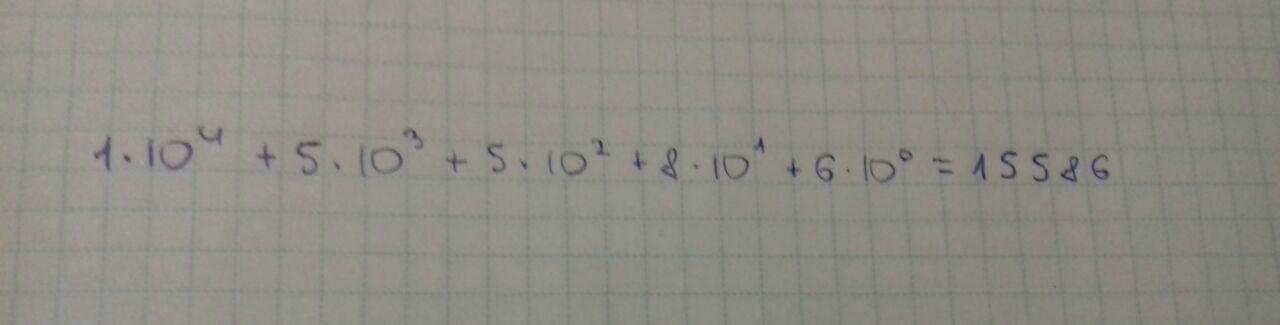 1·10⁴ + 5·10³ + 5·10² + 8·10¹ + 6·10⁰ = 15586